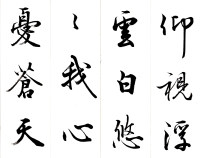 仰視浮
雲白悠
〻我心
憂蒼天